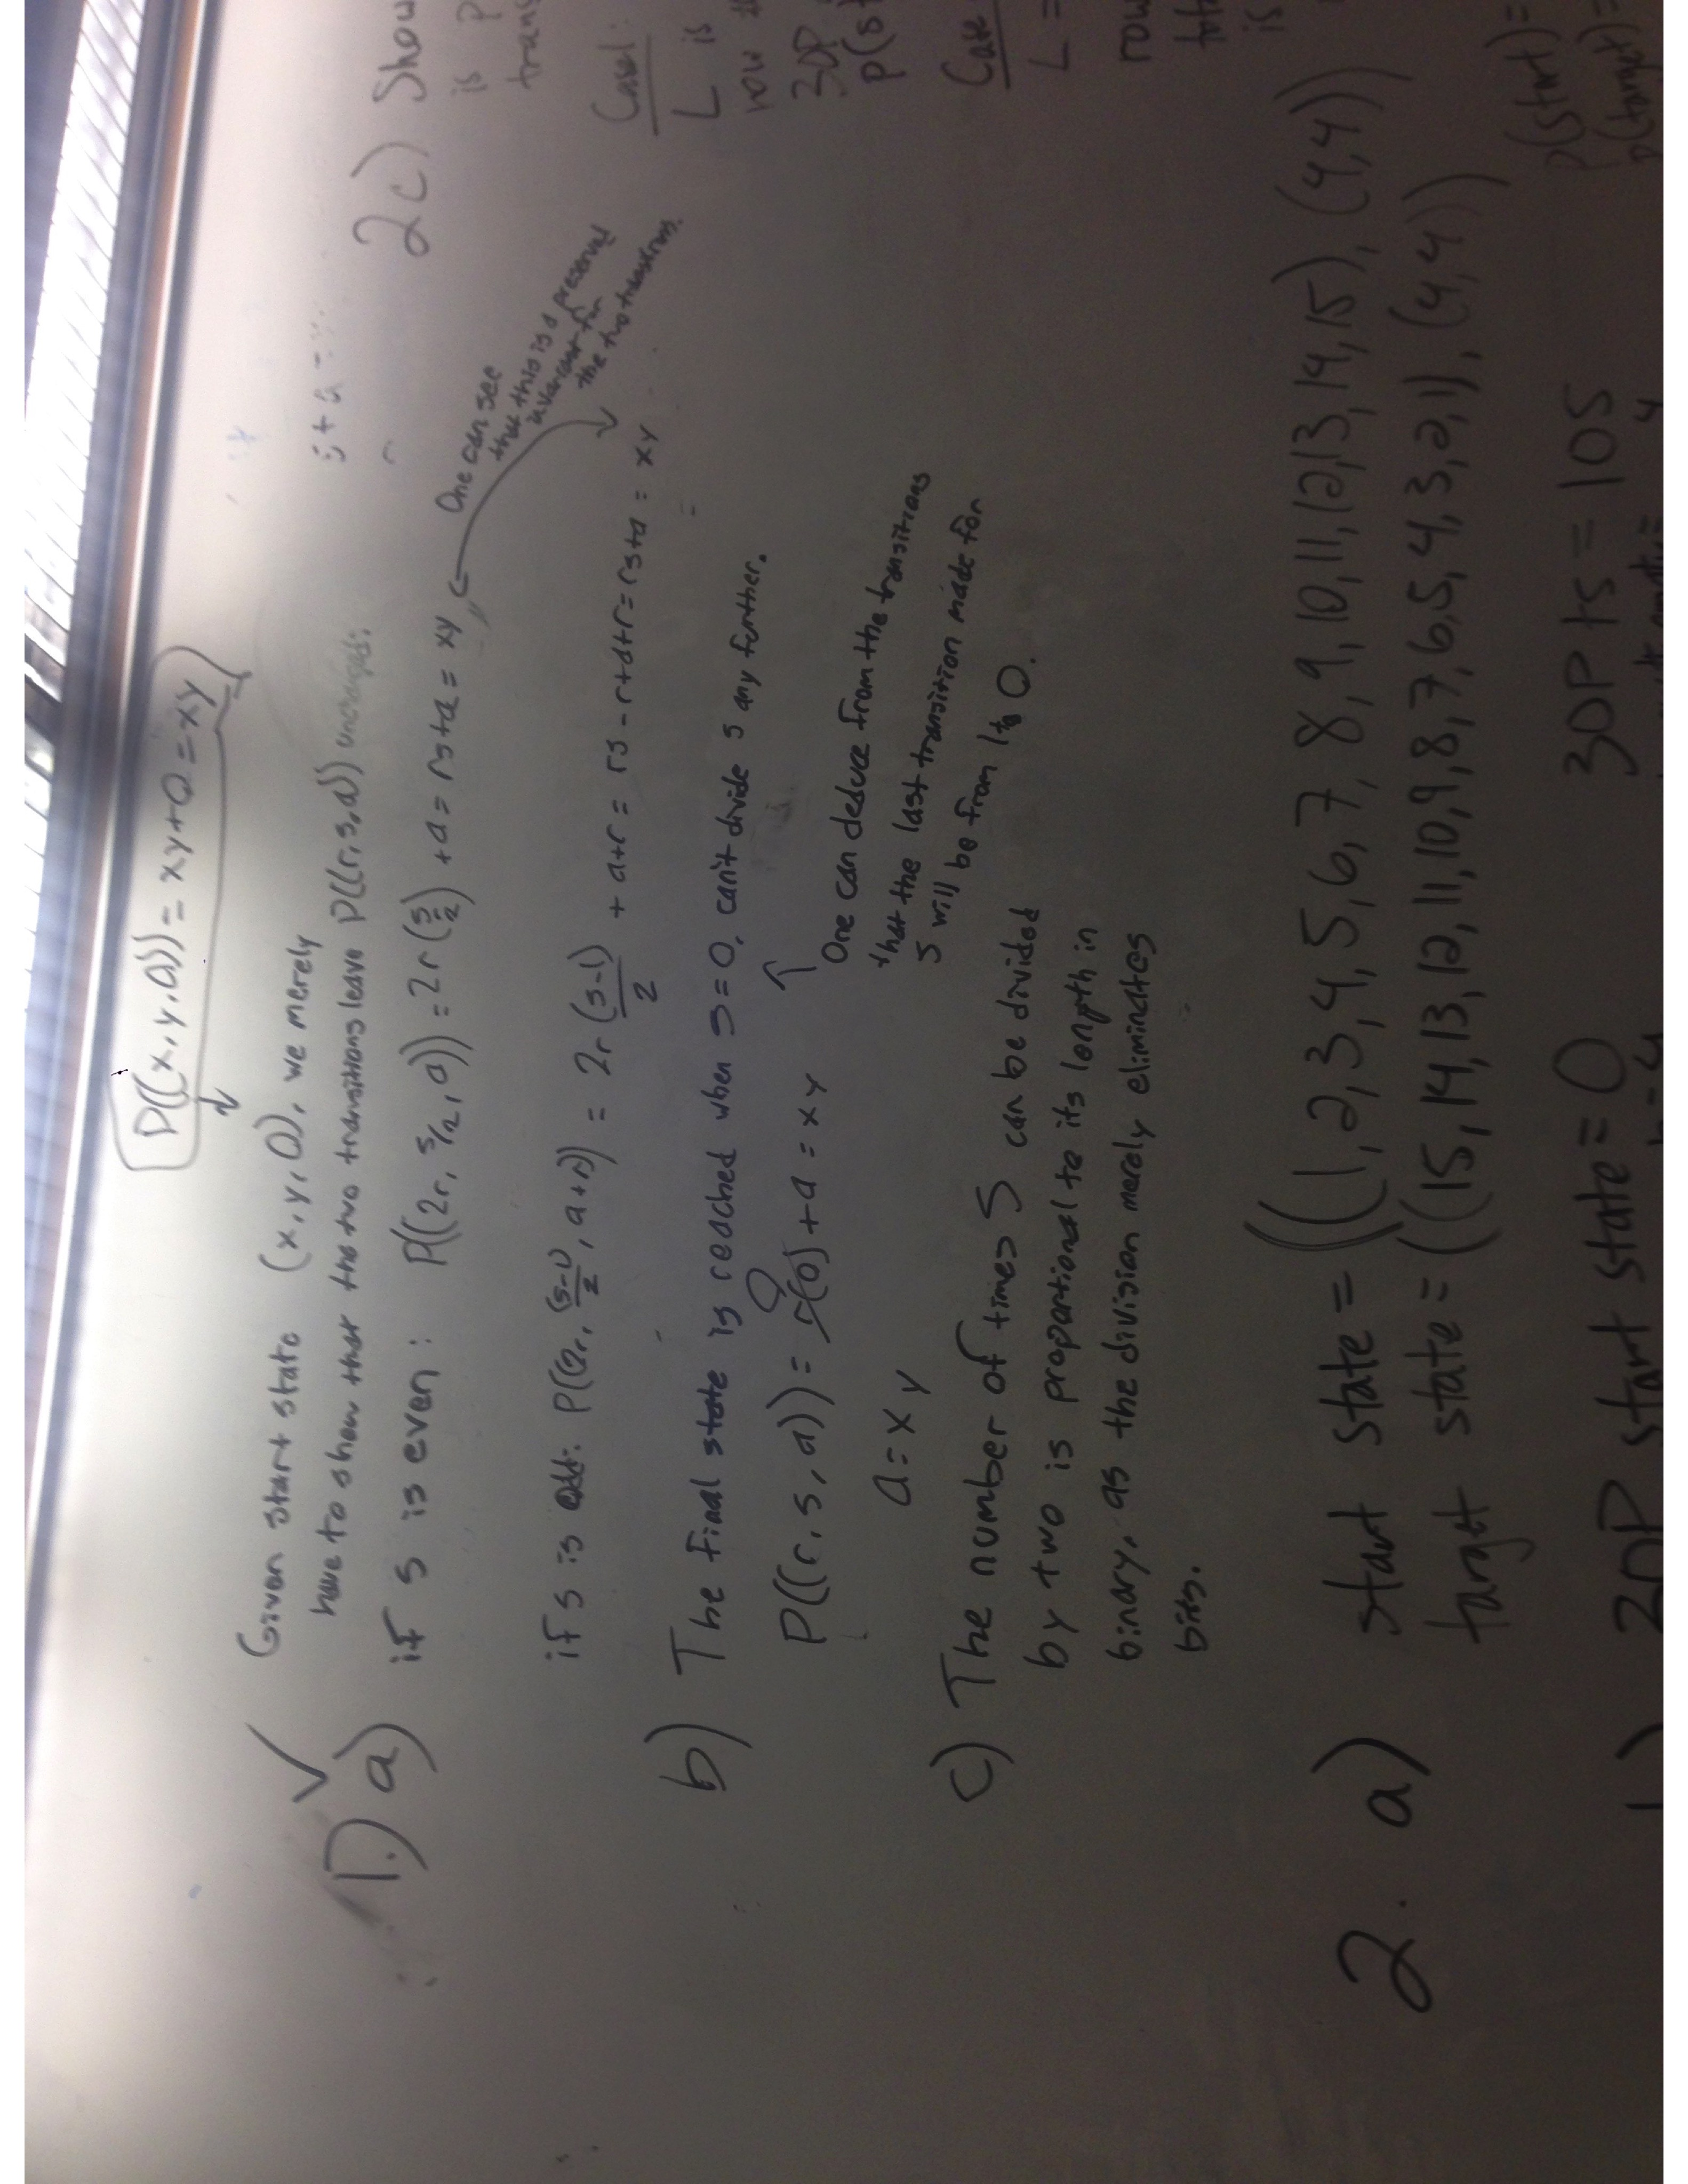 P((x,y,0)) = xy+0 = xy
Given start state (x,y,0), we merely
have to show that the two transitions leave P((r,s,a)) unchanged.
1.) a) if s is even: P((2r, s/2, a)) = 2r(s/2) + a = rs+a = xy
One can see
that this is a preserved
invariant for
the two transitions.
if s is odd: P((2r, (s-1)/2, a+r)) = 2r (s-1)/2 + a+r = rs-r+a+r = rs+a = xy
b) The final state is reached when s=0, can't divide s any further.
P((r,s,a)) = r(0)+a = xy
0
a = xy
One can deduce from the transitions
that the last transition made for
s will be from 1 to 0.
c) The number of times S can be divided
by two is proportional to its length in
binary, as the division merely eliminates
bits.
2. a) start state = ((1,2,3,4,5,6,7,8,9,10,11,12,13,14,15), (4,4))
target state = ((15,14,13,12,11,10,9,8,7,6,5,4,3,2,1), (4,4))
30P start state = 0
30P ts = 105
2c) Show
is P
trans
Case1:
L is
row
30P
P(s
Case
L =
row
is
p(start) =
p(target) =